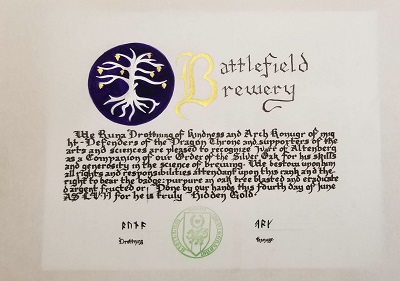 Battlefield
Brewery
We Runa Drottning of kindness and Arch Konugr of mig
ht - Defenders of the Dragon Throne and supporters of the
arts and sciences are pleased to recognize Ivarr of Altenberg
as a Companion of our Order of the Silver Oak for his skills
and generosity in the science of brewing. We bestow upon him
all rights and responsibilities attendant upon this rank and the
right to bear the badge: purpure an oak tree blasted and eradicated
d'argent fructed or. Done by our hands this fourth day of June
AS LVII for he is truly Hidden Gold
ᚱᚢᚾᚨ
Drottning
Konugr